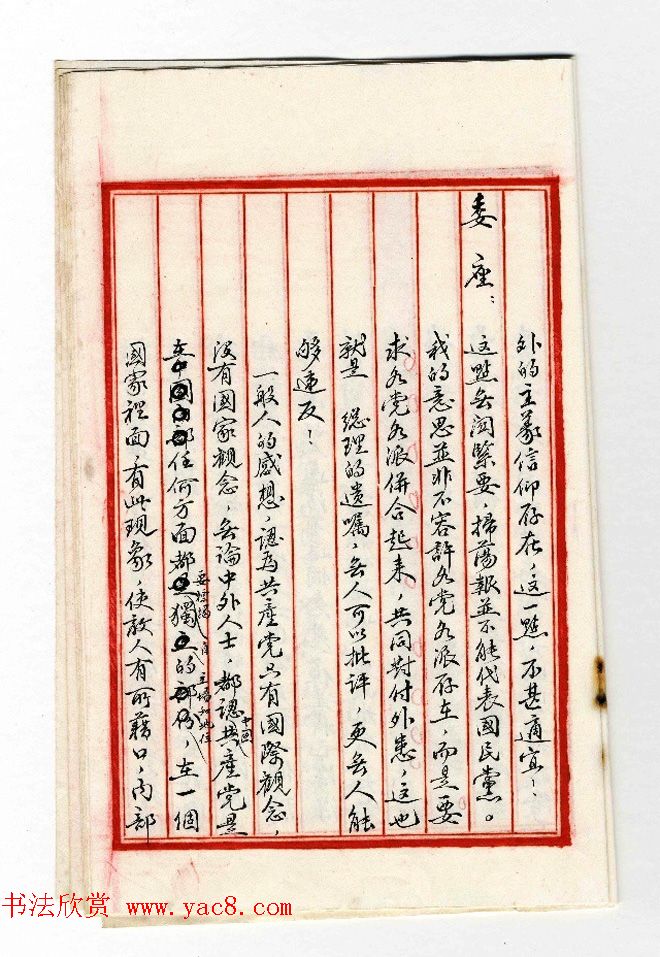 外的主義信仰存在，這一點，不甚適宜！
委座：這點無関緊要，掃蕩報並不能代表國民黨。
我的意思並非不容許各党各派存在，而是要
求各党各派併合起来，共同對付外患，這也
就是 總理的遺囑，無人可以批評，更無人能
够違反！
一般人的感想，認為共產党只有國際觀念，
没有國家觀念，無論中外人士，都認中國共產党是
任何方面都要獨立的立場和地位，在一個
國家裡面，有此現象，使敵人有所藉口，内部
书法欣赏 www.yac8.com